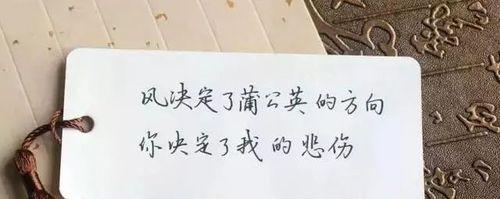 风决定了蒲公英的方向
你决定了我的悲伤